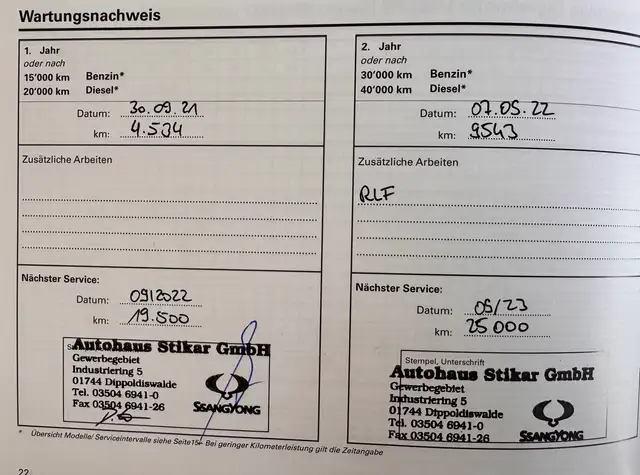 Wartungsnachweis
1. Jahr
oder nach
15'000 km Benzin*
20'000 km Diesel*
Datum: 30.09.21
km: 4.504
Zusätzliche Arbeiten
Nächster Service:
Datum: 09/2022
km: 19.500
Autohaus Stikar GmbH
Gewerbegebiet
Industriering 5
01744 Dippoldiswalde
Tel. 03504 6941-0
Fax 03504 6941-26
SSANGYONG
2. Jahr
oder nach
30'000 km Benzin*
40'000 km Diesel*
Datum: 07.05.22
km: 9543
Zusätzliche Arbeiten
RLF
Nächster Service:
Datum: 05/23
km: 25 000
Stempel, Unterschrift
Autohaus Stikar GmbH
Gewerbegebiet
Industriering 5
01744 Dippoldiswalde
Tel. 03504 6941-0
Fax 03504 6941-26
SSANGYONG
* Übersicht Modelle/Serviceintervalle siehe Seite15- Bei geringer Kilometerleistung gilt die Zeitangabe
22